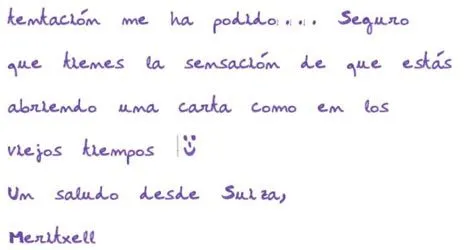 tentación me ha podido.... Seguro
que tienes la sensación de que estás
abriendo una carta como en los
viejos tiempos
Un saludo desde Suiza,
Meritxell